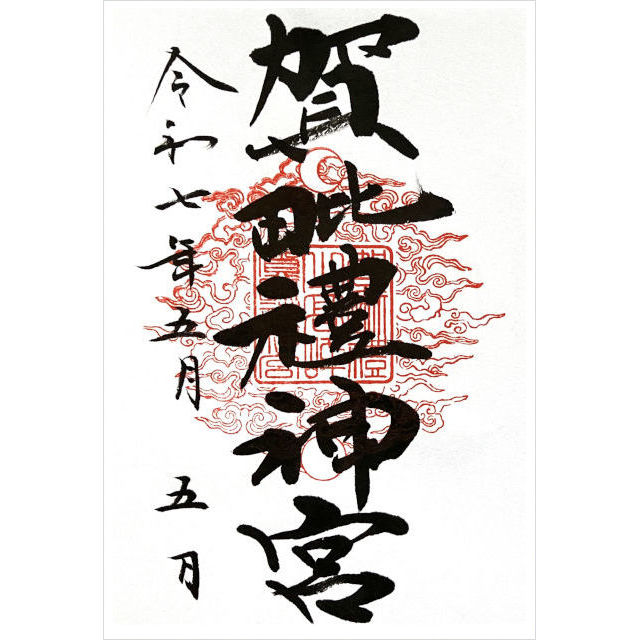 賀毗禮神宮
令和七年五月五日